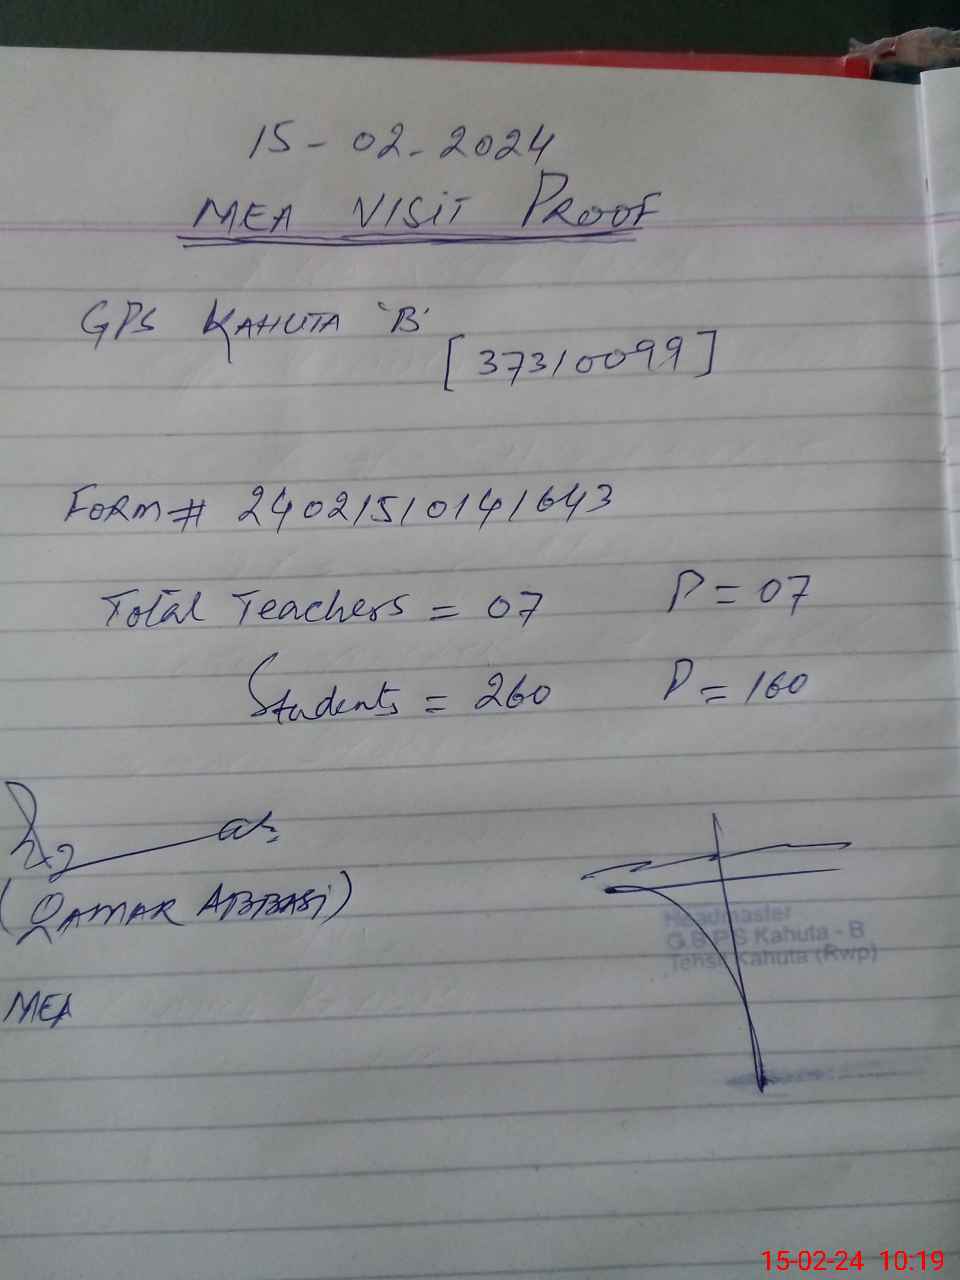 15-02-2024
MEA VISIT PROOF
GPS KAHUTA 'B'
[37310099]
FORM# 24021510141643
Total Teachers = 07 P = 07
Students = 260 P = 160
(QAMAR ABBASI)
MEA
Headmaster
G.B.P.S Kahuta - B
Tehsil Kahuta (Rwp)
15-02-24 10:19